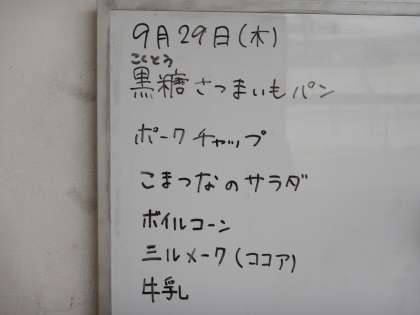 9月29日(木)
こくとう
黒糖さつまいもパン
ポークチャップ
こまつなのサラダ
ボイルコーン
ミルメーク(ココア)
牛乳